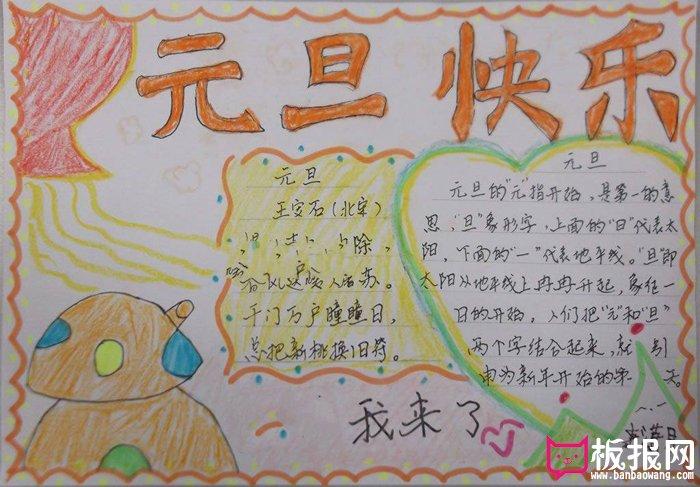 元旦快乐
元旦
王安石(北宋)
除,
入屠苏。
千门万户瞳瞳日,
总把新桃换旧符。
元旦
元旦的"元"指开始,是第一的意
思,"旦"象形字,上面的"日"代表太
阳,下面的"一"代表地平线。"旦"即
太阳从地平线上冉冉升起,象征一
日的开始,人们把"元"和"旦"
两个字结合起来,就引
申为新年开始的第天。
我来了
板报网
www.banbaowang.com